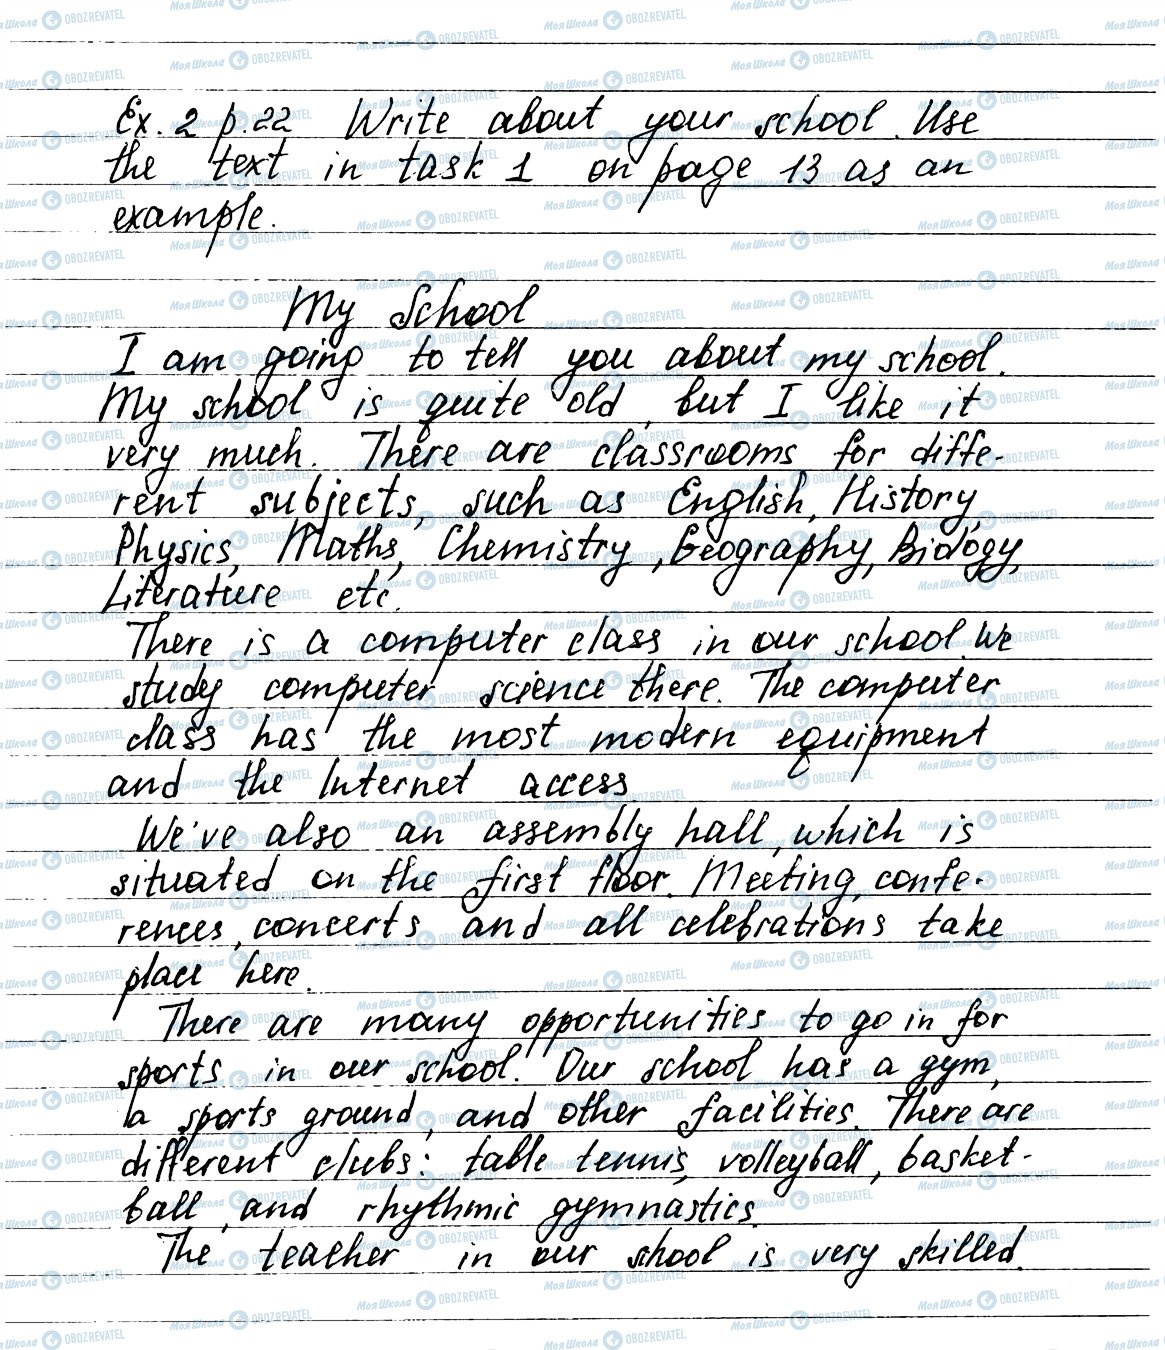 Ex. 2 p.22 Write about your school. Use
the text in task 1 on page 13 as an
example.
My School
I am going to tell you about my school.
My school is quite old, but I like it
very much. There are classrooms for diffe-
rent subjects, such as English, History,
Physics, Maths, Chemistry, Geography, Biology,
Literature etc.
There is a computer class in our school. We
study computer science there. The computer
class has the most modern equipment
and the Internet access.
We've also an assembly hall, which is
situated on the first floor. Meeting, confe-
rences, concerts and all celebrations take
place here.
There are many opportunities to go in for
sports in our school. Our school has a gym,
a sports ground, and other facilities. There are
different clubs: table tennis, volleyball, basket-
ball, and rhythmic gymnastics.
The teacher in our shool is very skilled.
МояШкола OBOZREVATEL